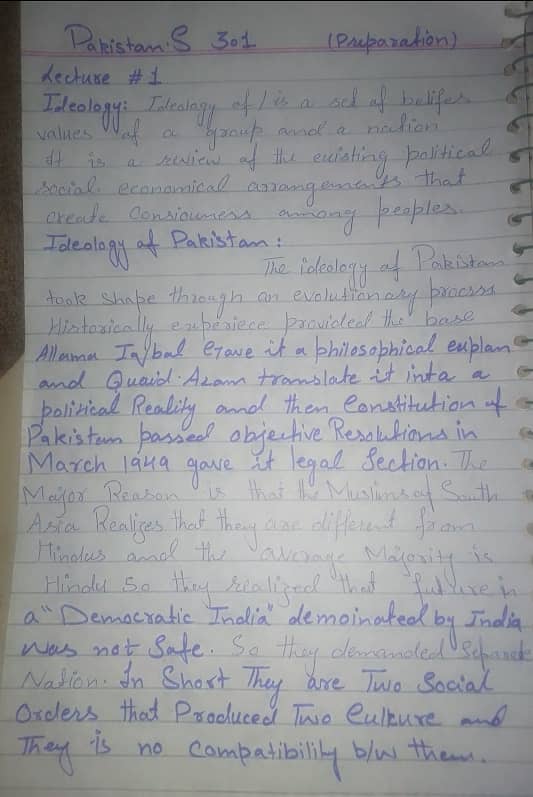 Pakistan.S 301 (Preparation)
Lecture # 1
Ideology: Idealogy of / is a set of belifes
values of a group and a nation
It is a review of the existing political
social economical arrangements that
create Consiouness among peoples.
Ideology of Pakistan :
The ideology of Pakistan
took shape through an evolutionary process
Historically experiece provided the base
Allama Iqbal Gave it a philosophical explan
and Quaid.Azam translate it into a
political Reality and then Constitution of
Pakistan passed objective Resolutions in
March 1949 gave it legal Section. The
Major Reason is that the Muslims of South
Asia Realizes that they are different from
Hindus and the average Majority is
Hindu So they realized that future in
a "Democratic India" demoinated by India
was not Safe. So they demanded Separate
Nation. In Short They are Two Social
Orders that Produced Two Culture and
They is no compatibility b/w them.